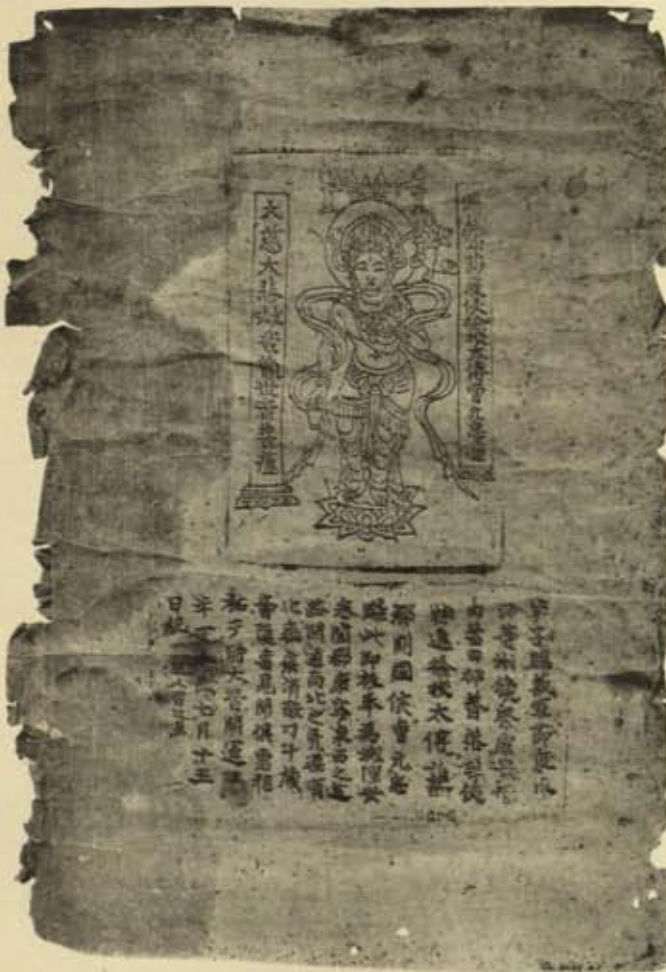 歸義軍節度使檢校太傅曹元忠造
大慈大悲救苦觀世音菩薩
弟子歸義軍節度瓜
沙等州觀察處置管
內營田押蕃落等使
特進檢校太傅譙
郡開國侯曹元忠
雕此印板奉為城隍安
泰闔郡康寧東西之道
路開通南北之兇渠順
化癘疾消散刁斗藏
音隨喜見聞俱霑福
祐于時大晉開運四
年丁未歲七月十五
日紀 匠人